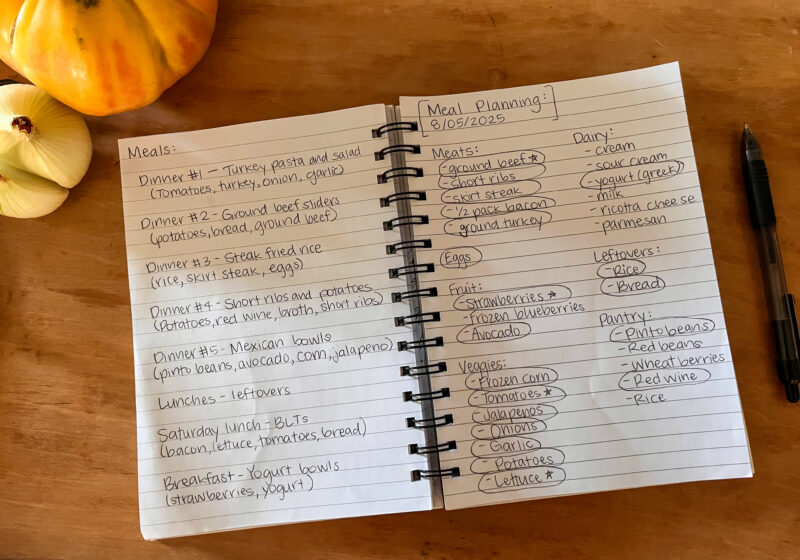 Meals:
Dinner #1 - Turkey pasta and salad
(Tomatoes, turkey, onion, garlic)
Dinner #2 - Ground beef sliders
(potatoes, bread, ground beef)
Dinner #3 - Steak fried rice
(rice, skirt steak, eggs)
Dinner #4 - Short ribs and potatoes
(Potatoes, red wine, broth, short ribs)
Dinner #5 - Mexican bowls
(pinto beans, avocado, corn, jalapeno)
Lunches - leftovers
Saturday lunch - BLTs
(bacon, lettuce, tomatoes, bread)
Breakfast - Yogurt bowls
(strawberries, yogurt)
[Meal Planning:]
8/05/2025
Meats:
- ground beef ☆
- short ribs
- skirt steak
- 1/2 pack bacon
- ground turkey
Eggs
Fruit:
- Strawberries ☆
- Frozen blueberries
- Avocado
Veggies:
- Frozen corn
- Tomatoes ☆
- Jalapenos
- Onions
- Garlic
- Potatoes
- Lettuce ☆
Dairy:
- cream
- sour cream
- yogurt (greek)
- milk
- ricotta cheese
- parmesan
Leftovers:
- Rice
- Bread
Pantry:
- Pinto beans
- Red beans
- Wheat berries
- Red wine
- Rice